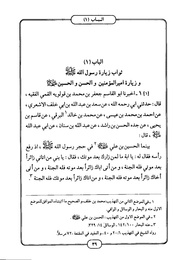 الباب (١)
الباب (١)
ثواب زيارة رسول الله ﷺ
و زيارة أمير المؤمنين و الحسن و الحسين ﷺ
(١) ١ ـ أخبرنا أبو القاسم جعفر بن محمد بن قولويه القمي الفقيه ،
قال : حدثني أبي رحمه الله ، عن سعد بن عبد الله بن أبي خلف الأشعري ،
عن أحمد بن محمد بن عيسى ، عن محمد بن خالد البرقي ، عن القاسم بن
يحيى ، عن جده الحسن بن راشد ، عن عبد الله بن سنان ، عن أبي عبد الله
، قال :
بينما الحسين بن علي في حجر رسول الله ﷺ اذ رفع
رأسه فقال له : يا أبة ما لمن زارك بعد موتك ، فقال : يا بني من أتاني زائراً
بعد موتي فله الجنة ، و من أتى أباك زائراً بعد موته فله الجنة ، و من أتى
أخاك زائراً بعد موته فله الجنة ، و من أتاك زائراً بعد موتك فله الجنة
٣٩